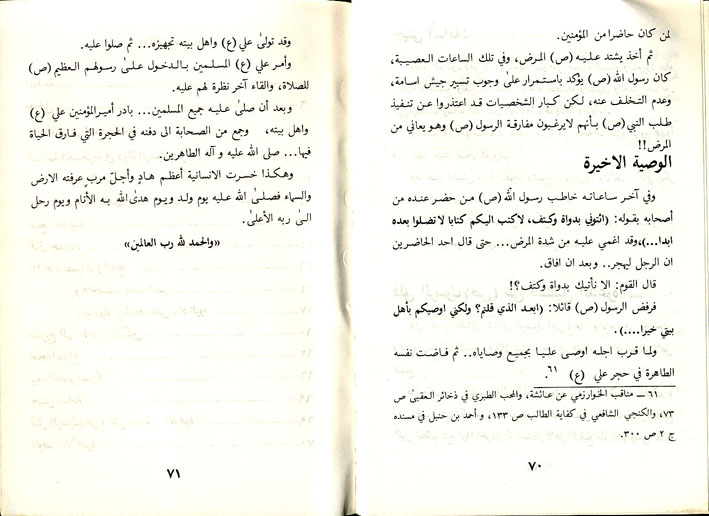 لمن كان حاضرا من المؤمنين.
ثم أخذ يشتد عليه (ص) المرض، وفي تلك الساعات العصيبة،
كان رسول الله (ص) يؤكد باستمرار علىٰ وجوب تسيير جيش اسامة،
وعدم التخلف عنه، لكن كبار الشخصيات قد اعتذروا عن تنفيذ
طلب النبي (ص) بأنهم لايرغبون مفارقة الرسول (ص) وهو يعاني من
المرض!!
الوصية الاخيرة
وفي آخر ساعاته خاطب رسول الله (ص) من حضر عنده من
أصحابه بقوله: (ائتوني بدواة وكتف، لاكتب اليكم كتابا لا تضلوا بعده
ابدا...)، وقد اغمي عليه من شدة المرض... حتى قال احد الحاضرين
ان الرجل ليهجر.. وبعد ان افاق.
قال القوم: الا نأتيك بدواة وكتف؟!
فرفض الرسول (ص) قائلا: (ابعد الذي قلتم؟ ولكني اوصيكم بأهل
بيتي خيرا....).
ولما قرب اجله اوصى عليا بجميع وصاياه.. ثم فاضت نفسه
الطاهرة في حجر علي (ع) ٦١.
٦١ ــ مناقب الخوارزمي عن عائشة، والمحب الطبري في ذخائر العقبىٰ ص
٧٣، والكنجي الشافعي في كفاية الطالب ص ١٣٣، و أحمد بن حنبل في مسنده
ج ٢ ص ٣٠٠.
٧٠
وقد تولىٰ علي (ع) واهل بيته تجهيزه... ثم صلوا عليه.
وأمر علي (ع) المسلمين بالدخول علىٰ رسولهم العظيم (ص)
للصلاة، والقاء آخر نظرة لهم عليه.
وبعد أن صلىٰ عليه جميع المسلمين... بادر أمير المؤمنين علي (ع)
واهل بيته، وجمع من الصحابة الى دفنه في الحجرة التي فارق الحياة
فيها... صلى الله عليه و آله الطاهرين.
وهكذا خسرت الانسانية أعظم هادٍ وأجلّ مربٍ عرفته الارض
والسماء فصلىٰ الله عليه يوم ولد ويوم هدىٰ الله به الأنام ويوم رحل
الىٰ ربه الأعلىٰ.
«والحمد لله رب العالمين»
٧١